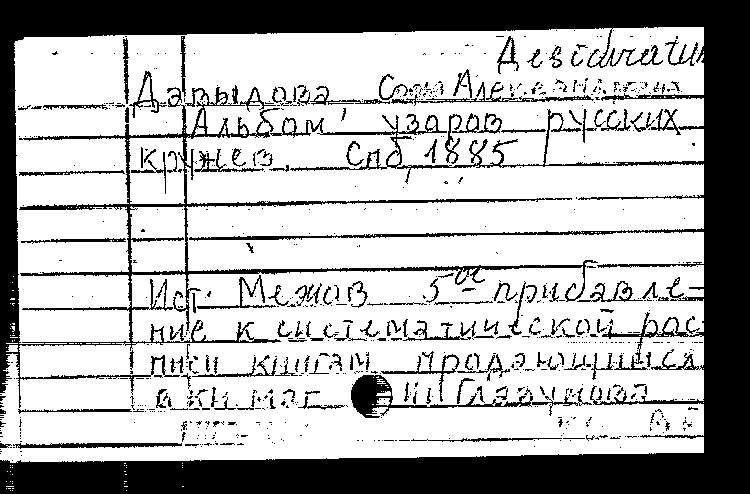 Desideratum
Давыдова Софья Александровна
Альбом узоров русских
кружев. Спб, 1885
Ист. Межов 5ое прибавле-
ние к систематической рос-
писи книгам продающимся
в кн маг Глазунова